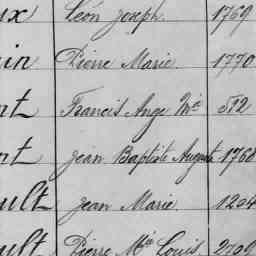 ux Léon Joseph. 1769
in Pierre Marie 1770
nt Francis Ange Mie 512
nt Jean Baptiste August 1768
ult Jean Marie 1204
ult Pierre Mie Louis 2709